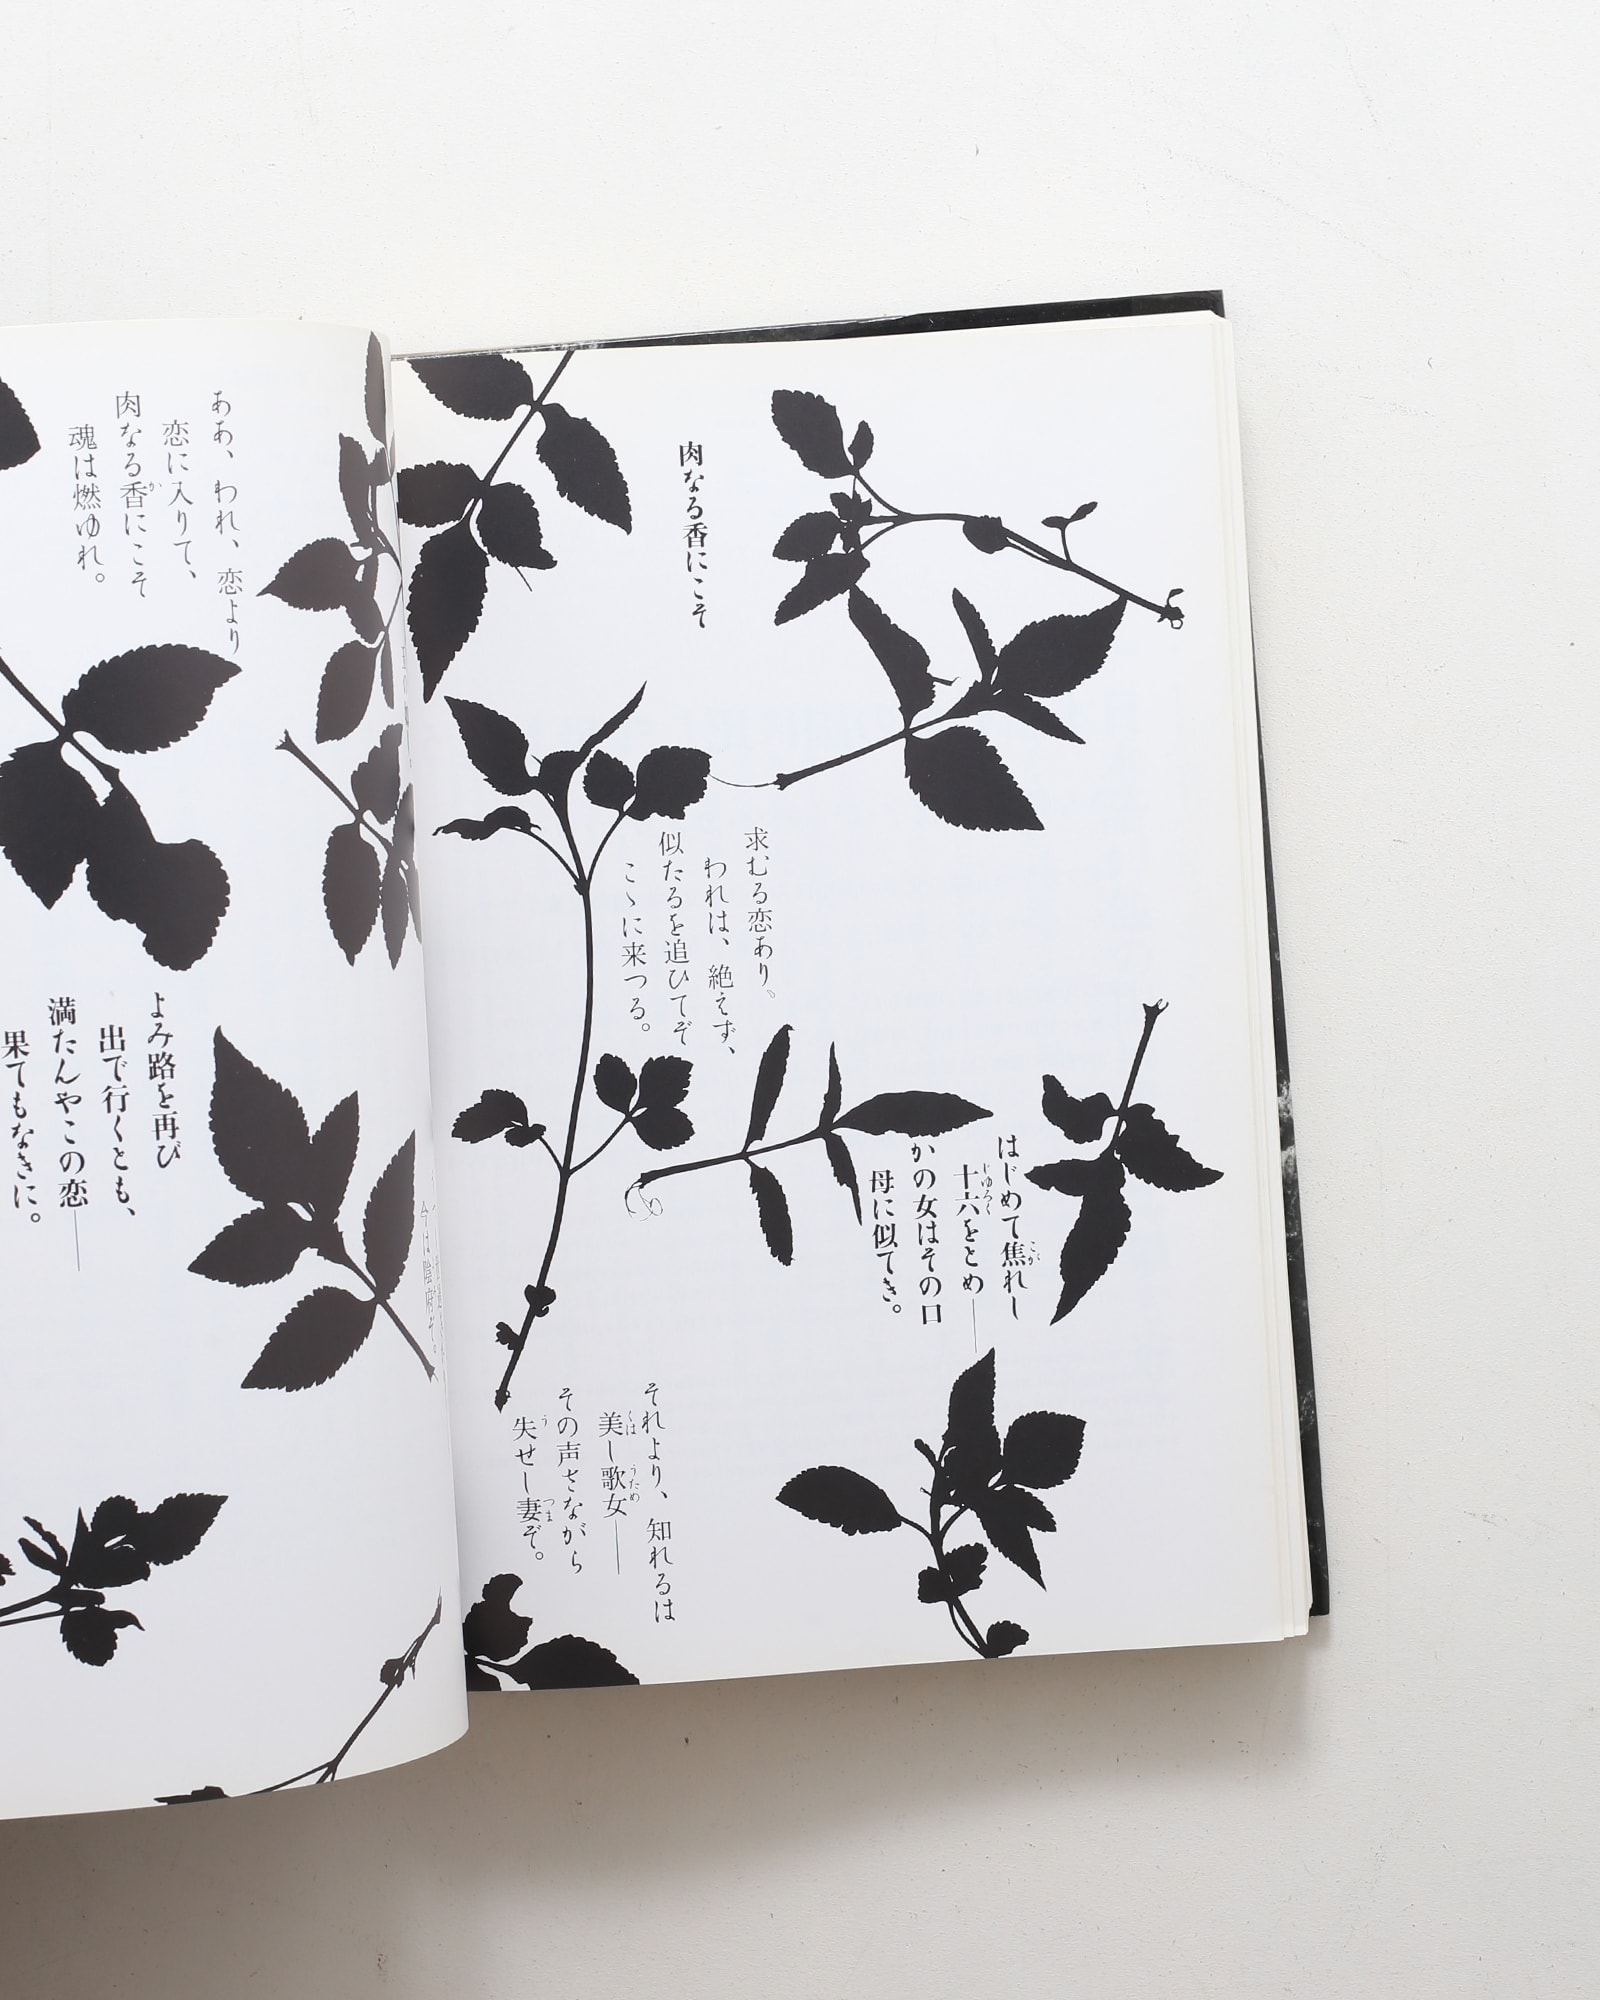 肉なる香にこそ
求むる恋あり。
われは、絶えず、
似たるを追ひてぞ
こゝに来つる。
はじめて焦れし
こが
十六をとめ——
じゆろく
かの女はその口
母に似てき。
それより、知れるは
美し歌女——
くは
うため
その声さながら
失せし妻ぞ。
う
つま
今は陰府ぞ。
ああ、われ、恋より
恋に入りて、
肉なる香にこそ
か
魂は燃ゆれ。
よみ路を再び
出で行くとも、
満たんやこの恋——
果てもなきに。